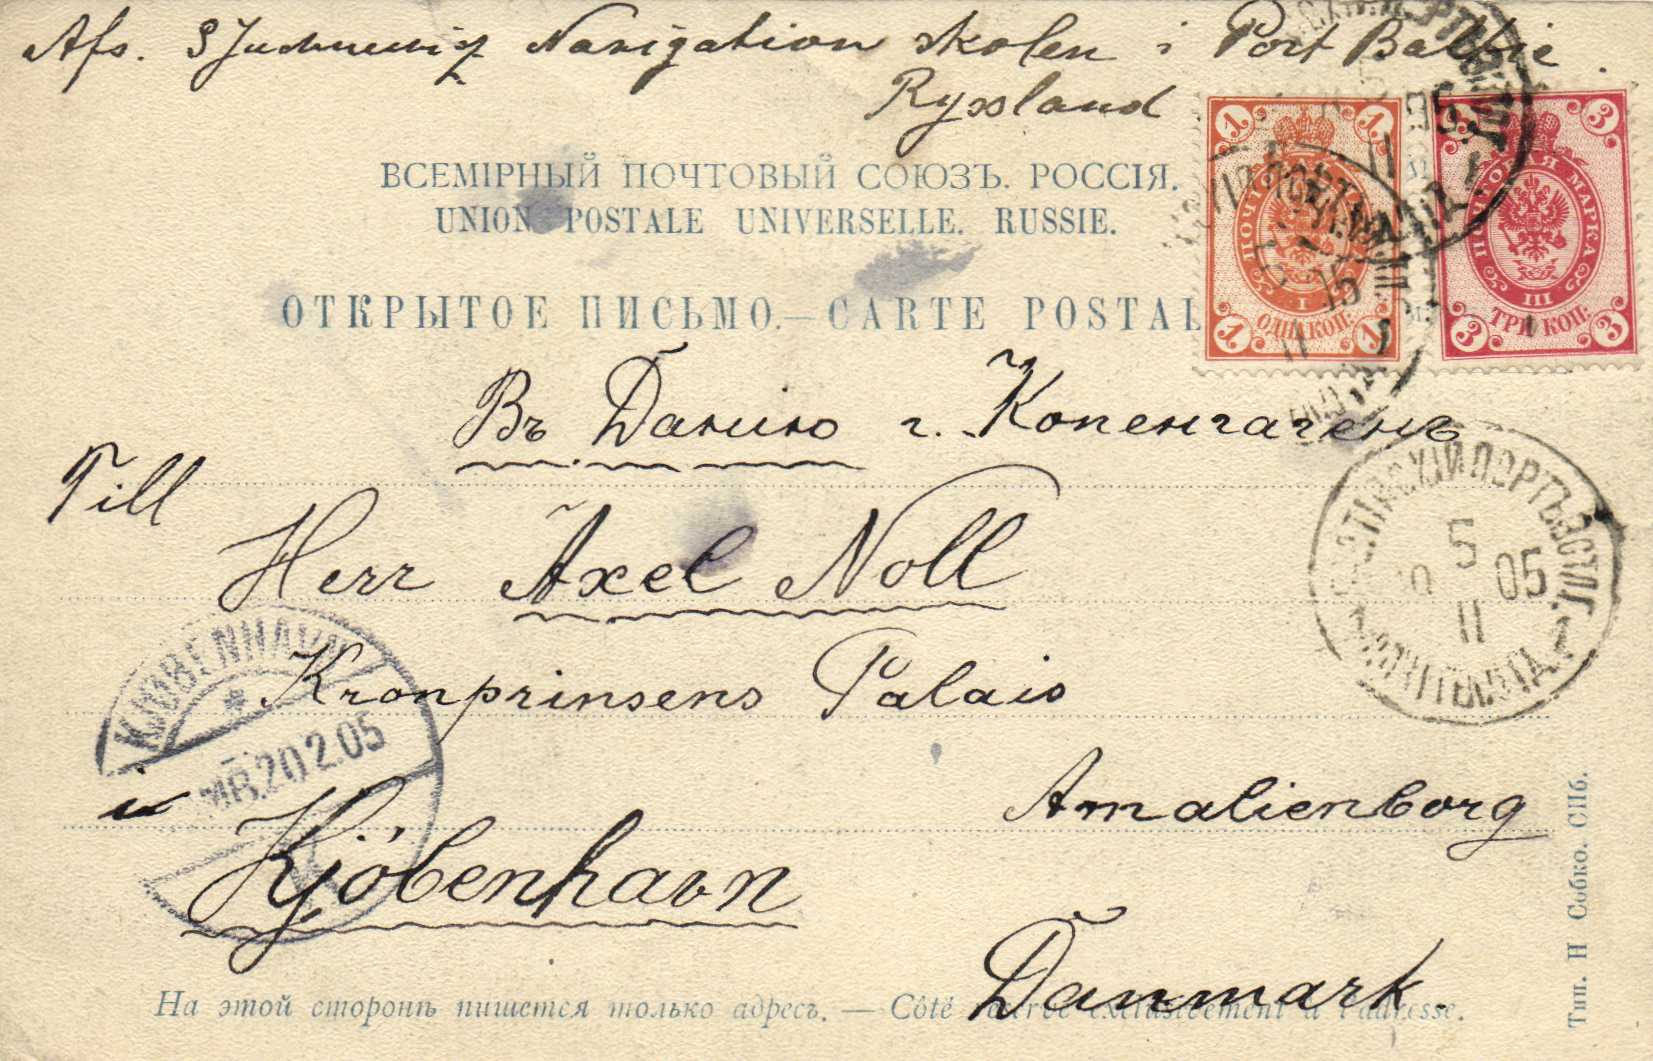 Afs. Navigation skolen i Port Baltic.
Ryssland
ВСЕМІРНЫЙ ПОЧТОВЫЙ СОЮЗЪ. РОССІЯ.
UNION POSTALE UNIVERSELLE. RUSSIE.
ОТКРЫТОЕ ПИСЬМО.—CARTE POSTAL
1 1
ПОЧТОВАЯ МАРКА
I
ОДНА КОП:
1 1
3 3
ПОЧТОВАЯ МАРКА
III
ТРИ КОП:
3 3
Въ Данию г. Копенгагенъ
Till
Herr Axel Noll
Kronprinsens Palais
Amalienborg
i Kjöbenhavn
Danmark.
БАЛТІЙСКІЙ ПОРТЪ ЭСТЛ.Г.
5
05
11
KJØBENHAVN
20 2.05
На этой сторонѣ пишется только адресъ. — Côté réservé exclusivement à l'adresse.
Тип. Н Собко. СПб.